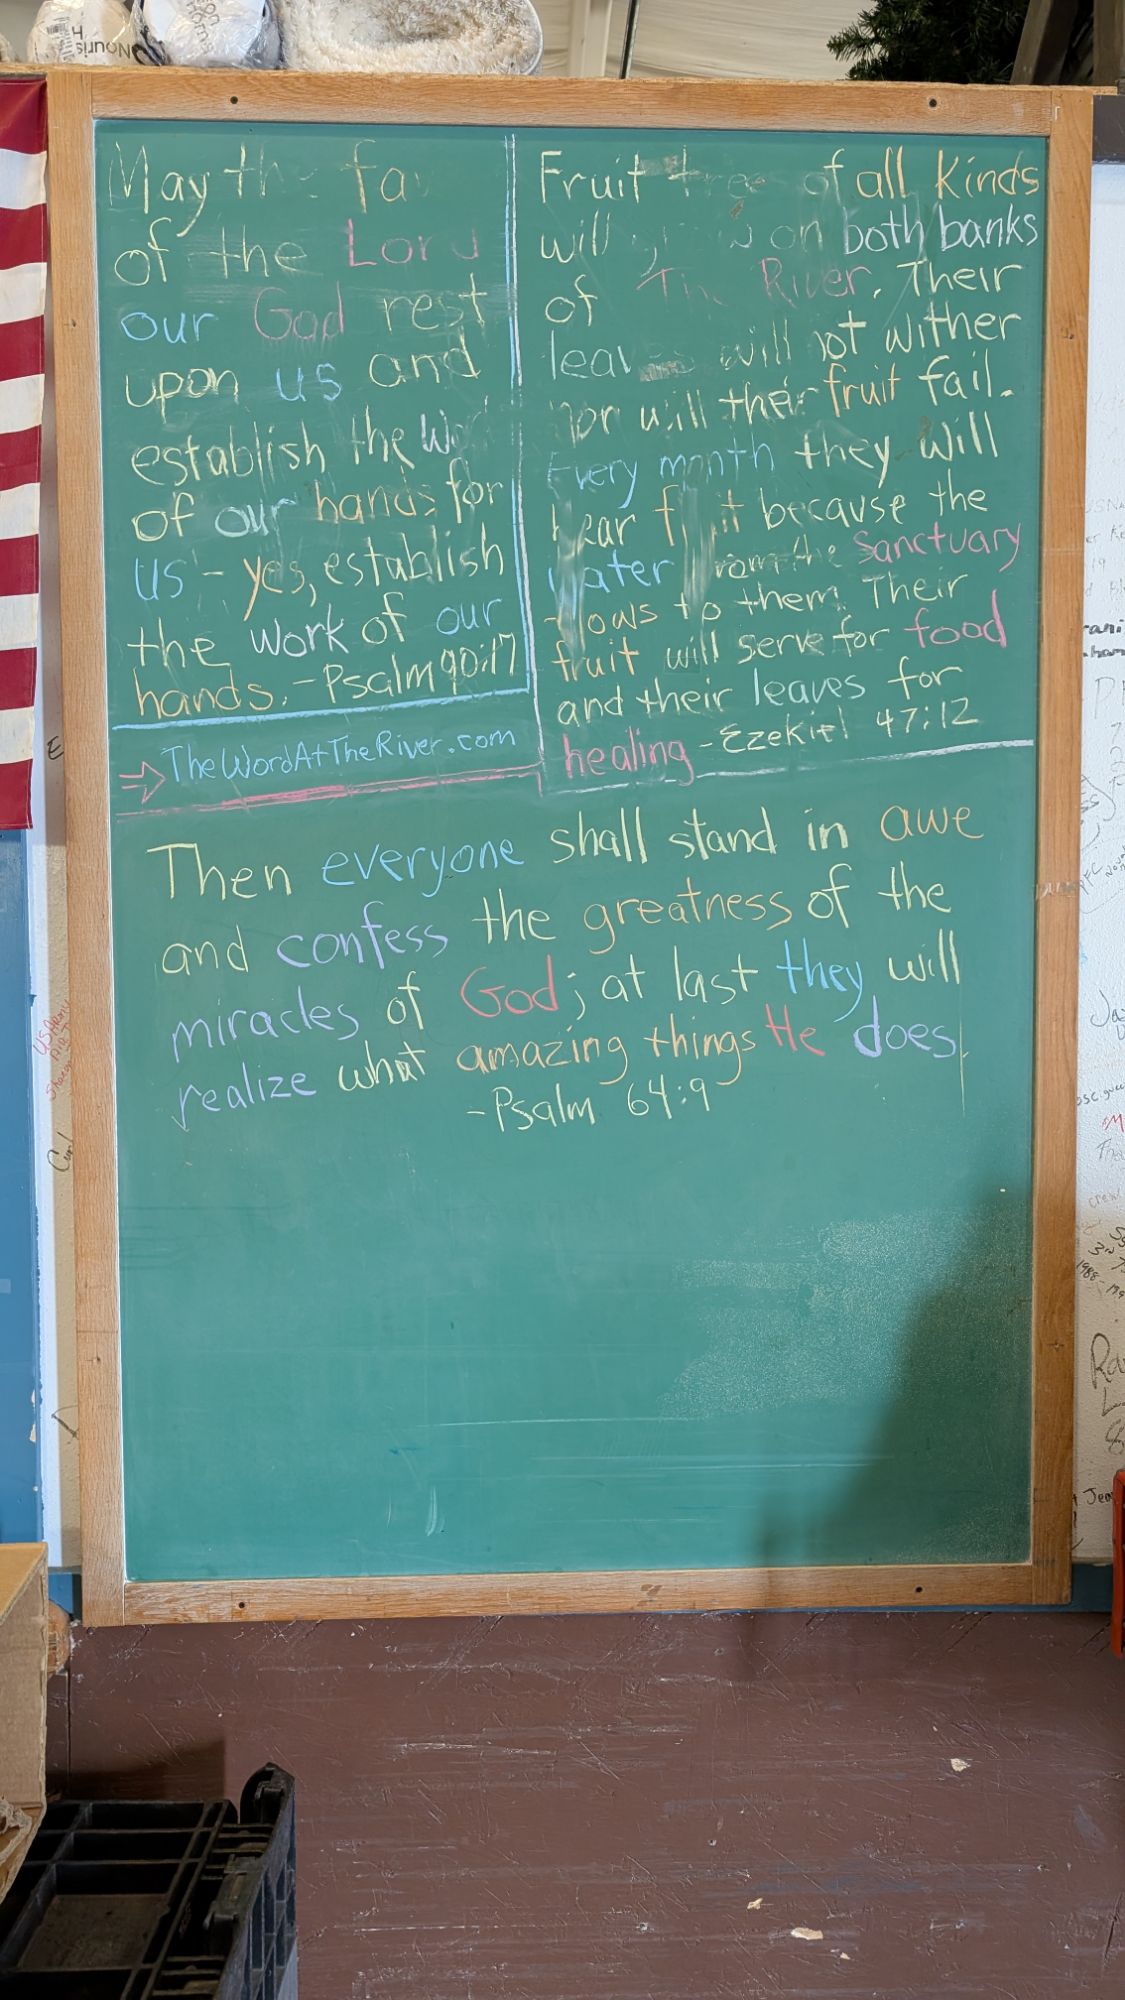 May the fa
of the Lord
our God rest
upon us and
establish the
of our hands for
us - yes, establish
the work of our
hands. - Psalm 90:17
TheWordAtTheRiver.com
Fruit trees of all kinds
will on both banks
of The River. Their
leaves will not wither
nor will their fruit fail.
Every month they will
bear fruit because the
water from the Sanctuary
flows to them. Their
fruit will serve for food
and their leaves for
healing - Ezekiel 47:12
Then everyone shall stand in awe
and confess the greatness of the
miracles of God; at last they will
realize what amazing things He does.
- Psalm 64:9